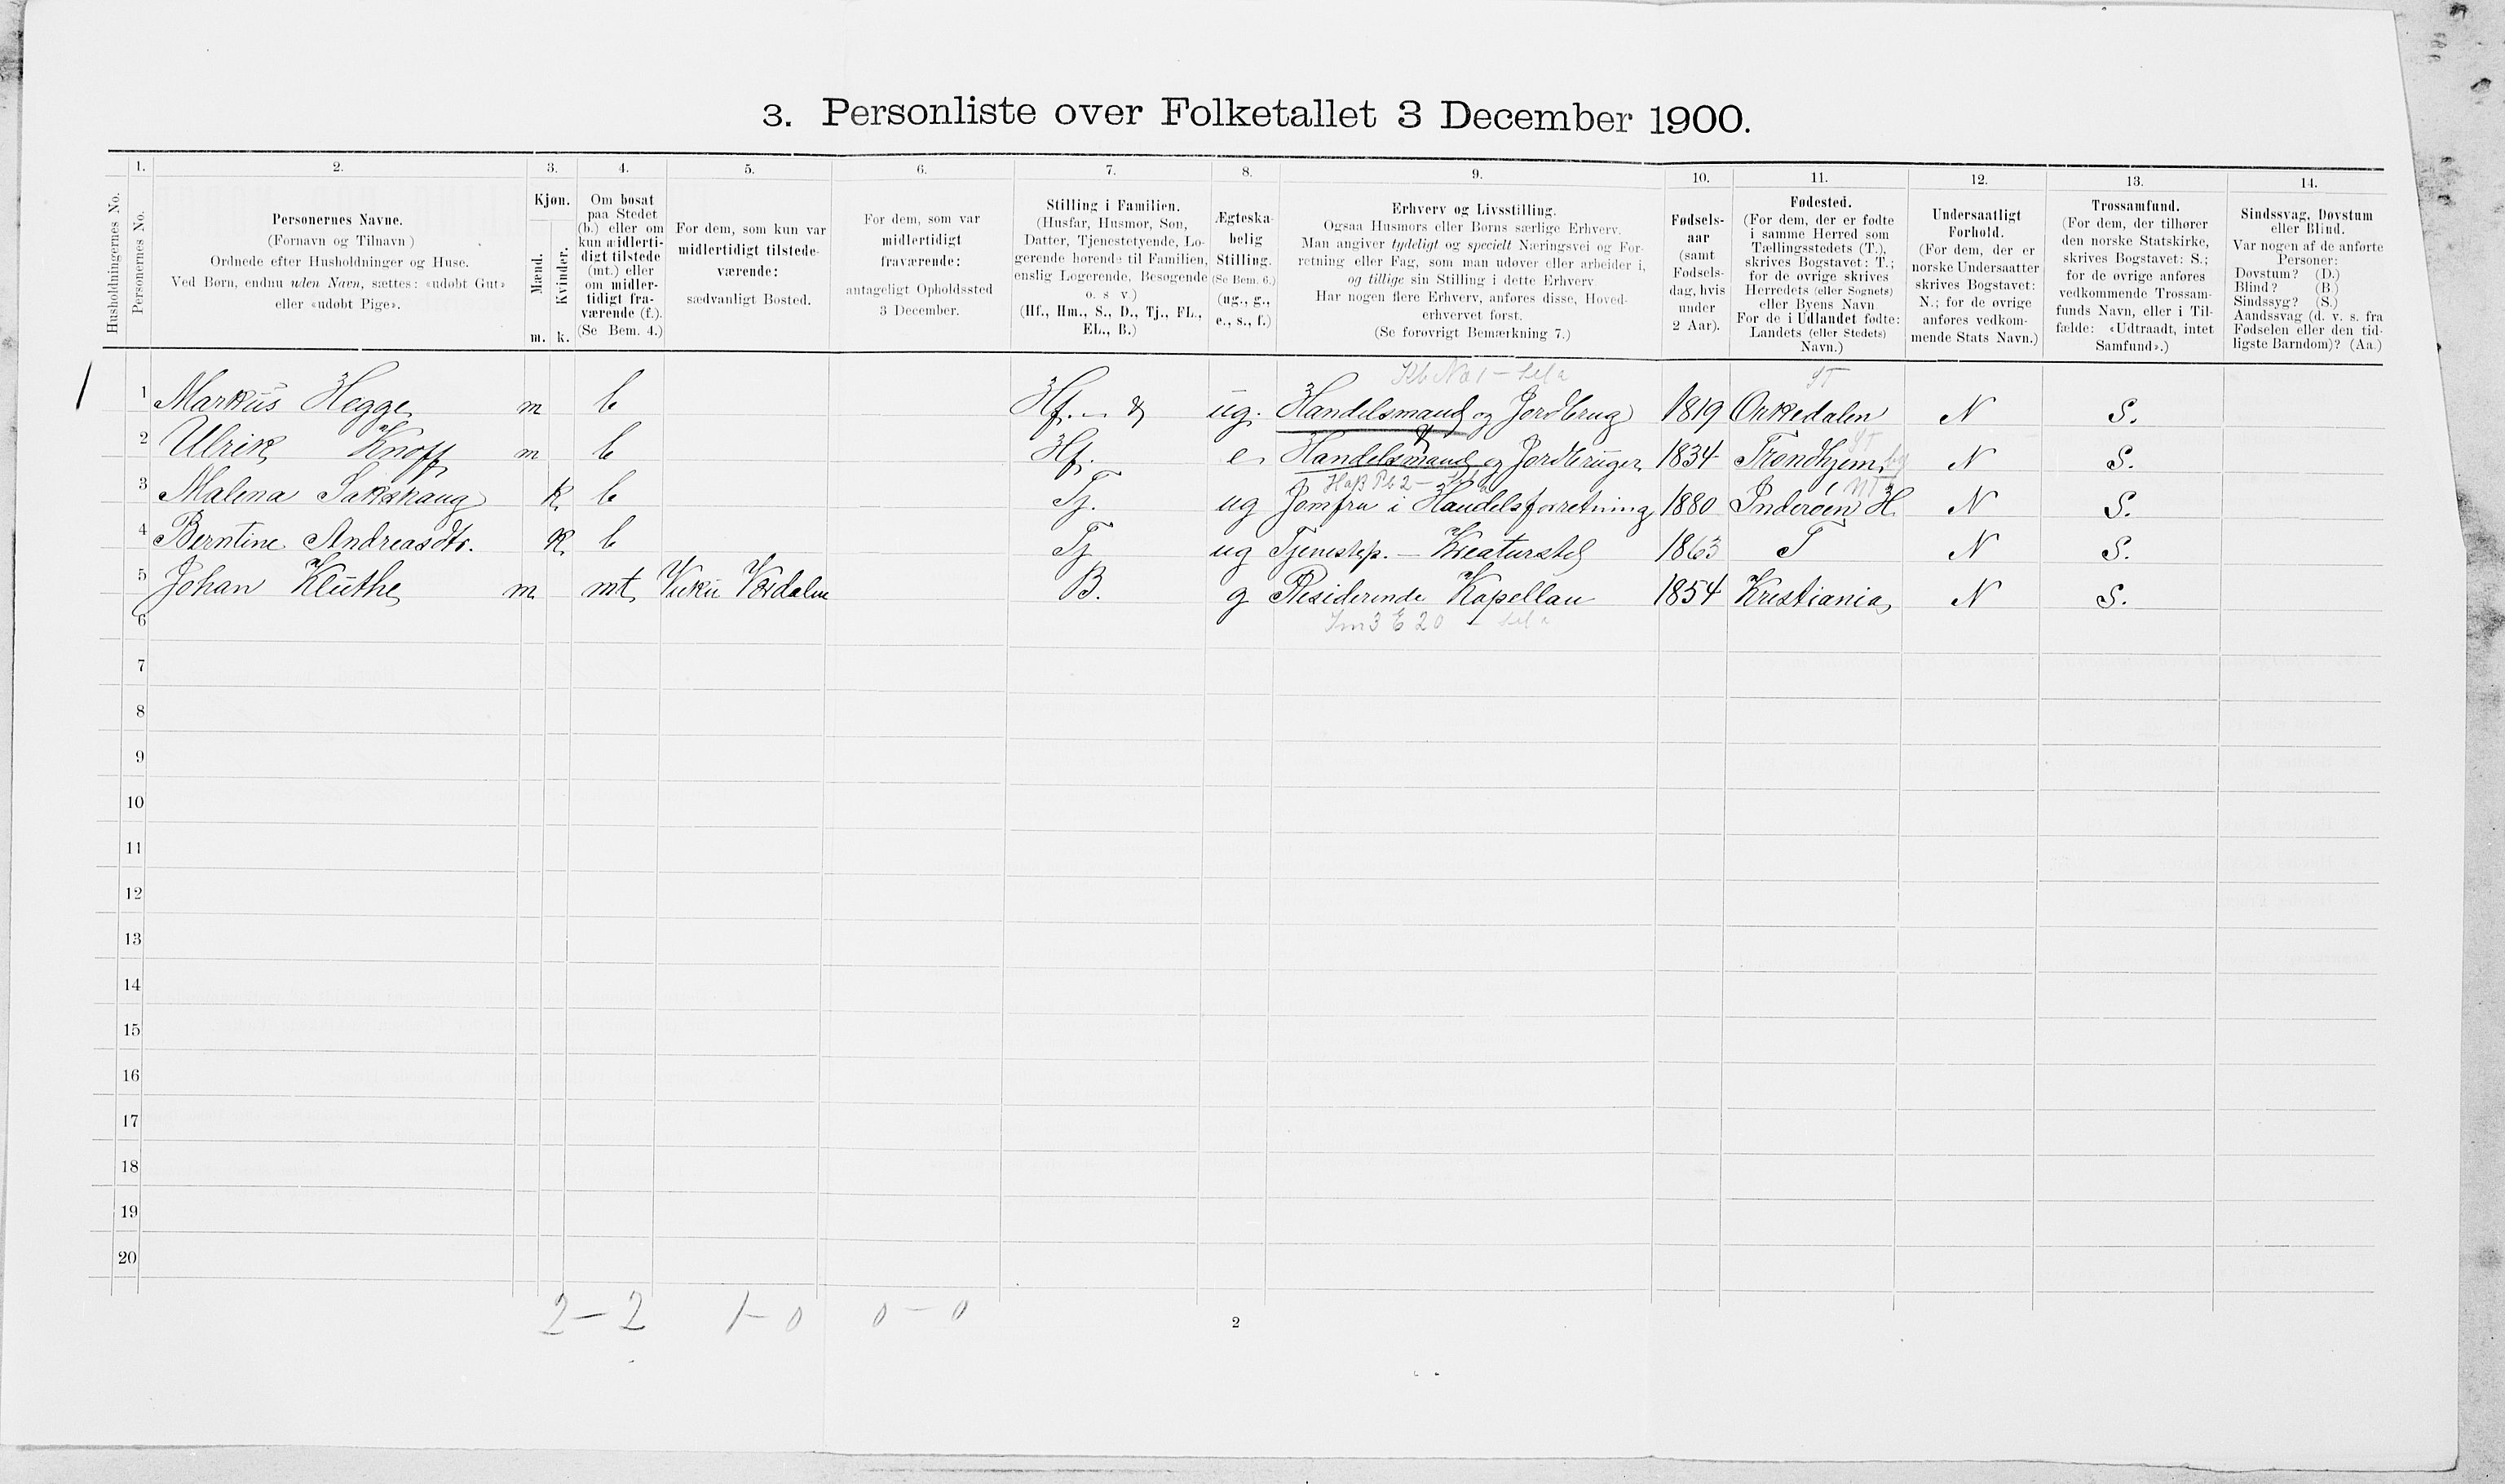 3. Personliste over Folketallet 3 December 1900.
1. 2. 3. 4. 5. 6. 7. 8. 9. 10. 11. 12. 13. 14.
Husholdningernes No.
Personernes No.
Personernes Navne.
(Fornavn og Tilnavn)
Ordnede efter Husholdninger og Huse.
Ved Børn, endnu uden Navn, sættes: «udøbt Gut»
eller «udøbt Pige».
Kjøn.
Mænd.
Kvinder.
m. k.
Om bosat
paa Stedet
(b.) eller om
kun midlerti-
digt tilstede
(mt.) eller
om midler-
tidigt fra-
værende (f.).
(Se Bem. 4.)
For dem, som kun var
midlertidigt tilstede-
værende:
sædvanligt Bosted.
For dem, som var
midlertidigt
fraværende:
antageligt Opholdssted
3 December.
Stilling i Familien.
(Husfar, Husmor, Søn,
Datter, Tjenestetyende, Lo-
gerende hørende til Familien,
enslig Logerende, Besøgende
o. s v.)
(Hf., Hm., S., D., Tj., FL.,
EL., B.)
Ægteska-
belig
Stilling.
(Se Bem. 6.)
(ug., g.,
e., s., f.)
Erhverv og Livsstilling.
Ogsaa Husmors eller Børns særlige Erhverv.
Man angiver tydeligt og specielt Næringsvei og For-
retning eller Fag, som man udøver eller arbeider i,
og tillige sin Stilling i dette Erhverv
Har nogen flere Erhverv, anføres disse, Hoved-
erhvervet først.
(Se forøvrigt Bemærkning 7.)
Fødsels-
aar
(samt
Fødsels-
dag, hvis
under
2 Aar).
Fødested.
(For dem, der er fødte
i samme Herred som
Tællingsstedets (T.),
skrives Bogstavet: T.;
for de øvrige skrives
Herredets (eller Sognets)
eller Byens Navn
For de i Udlandet fødte:
Landets (eller Stedets)
Navn.)
Undersaatligt
Forhold.
(For dem, der er
norske Undersaatter
skrives Bogstavet:
N.; for de øvrige
anføres vedkom-
mende Stats Navn.)
Trossamfund.
(For dem, der tilhører
den norske Statskirke,
skrives Bogstavet: S.;
for de øvrige anføres
vedkommende Trossam-
funds Navn, eller i Til-
fælde: «Udtraadt, intet
Samfund».)
Sindssvag, Døvstum
eller Blind.
Var nogen af de anførte
Personer:
Døvstum? (D.)
Blind? (B.)
Sindssyg? (S.)
Aandssvag (d. v. s. fra
Fødselen eller den tid-
ligste Barndom)? (Aa.)
ST
1 1 Markus Hegge m b Hf. ug. Handelsmand og Jordbrug 1819 Orkedalen N S.
2 Ulrik Knoff m b Hf. e Handelsmand og Jordbruger 1834 Trondhjem N S.
3 Malena Sakshaug k b Tj. ug Jomfru i Handelsforretning 1880 Inderøen H. N S.
4 Berntine Andreasdtr. k b Tj ug Tjenestep. – Kreaturstel 1863 T N S.
5 Johan Klüthe m mt Vuku Værdalen B. g Residerende Kapellan 1854 Kristiania N S.
6
7
8
9
10
11
12
13
14
15
16
17
18
19
20
2 – 2 1 – 0 0 – 0
2